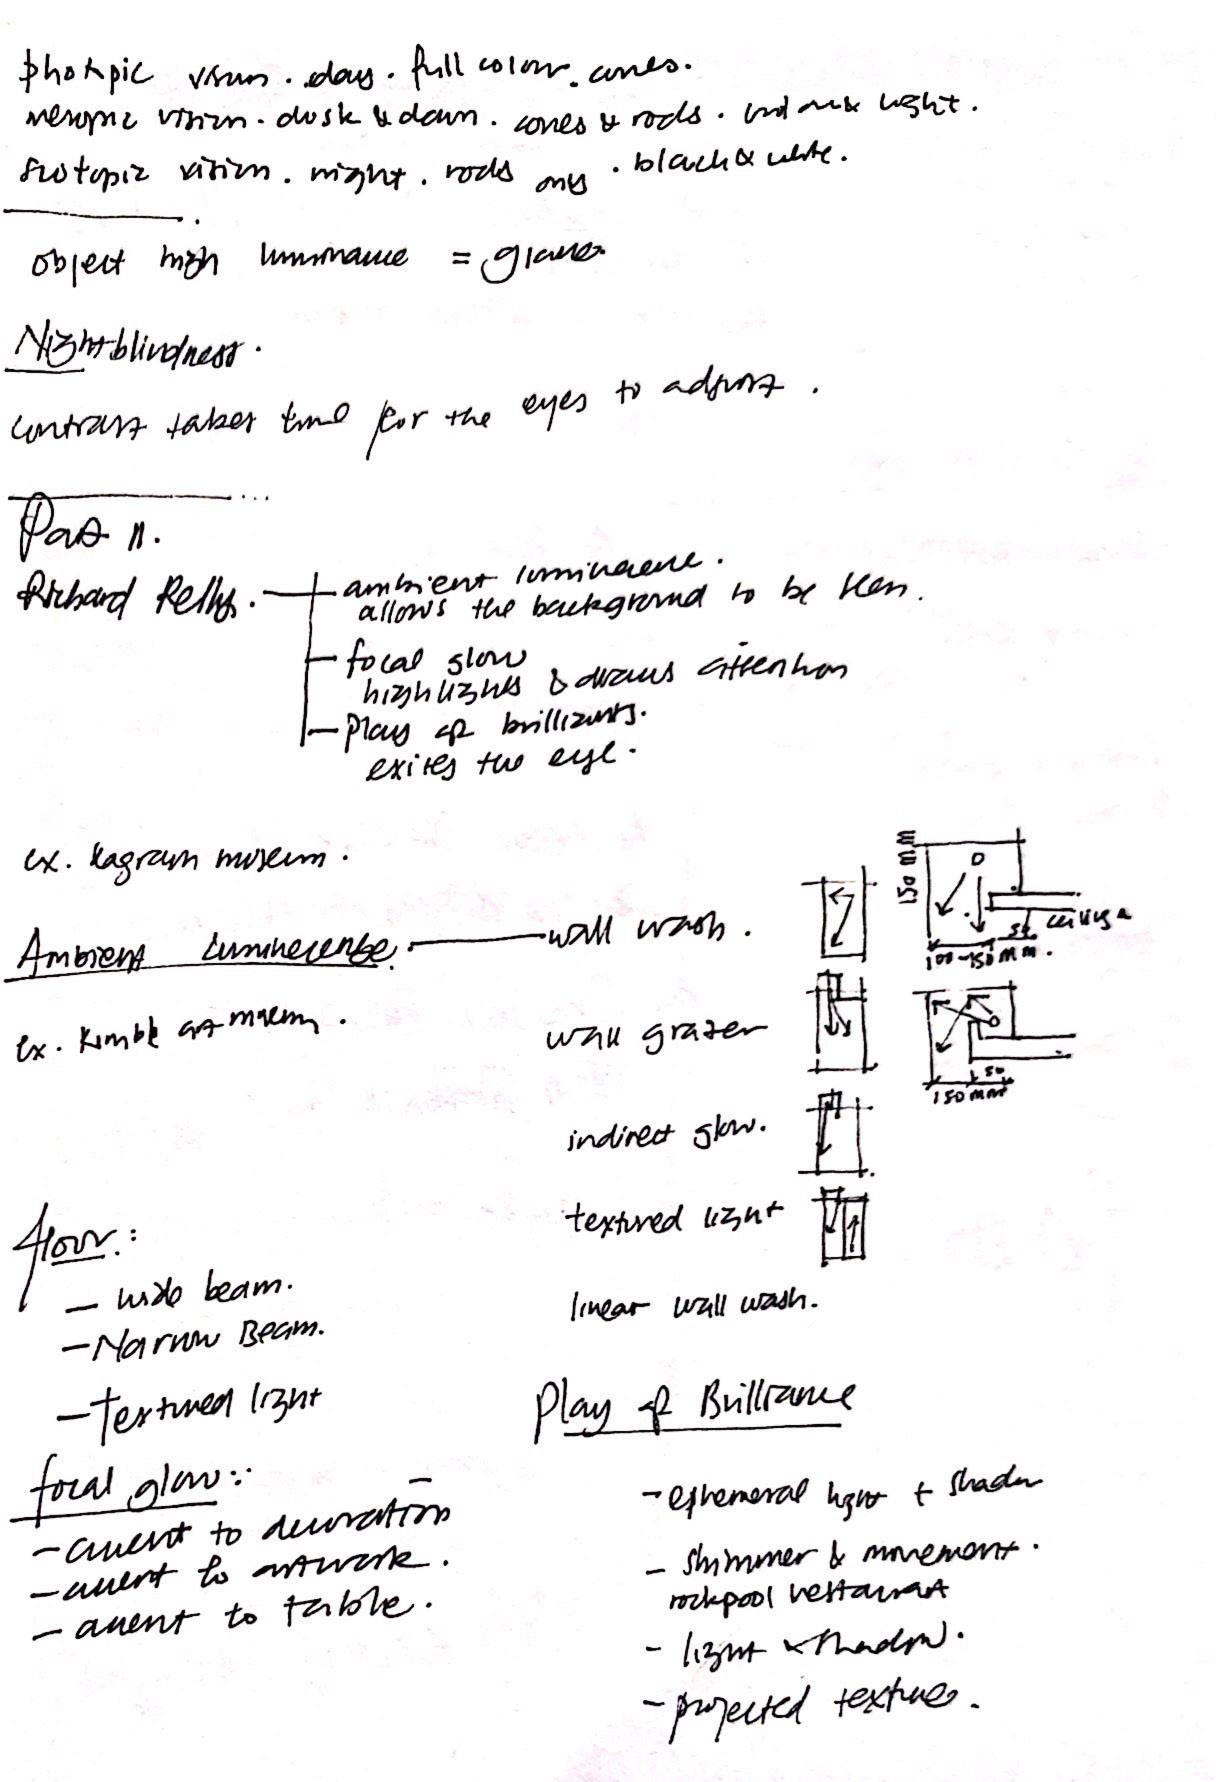 photopic vision . day . full colour . cones .
mesopic vision . dusk & dawn . cones & rods . light .
scotopic vision . night . rods only . black & white .
object high luminance = glare
Night blindness .
contrast takes time for the eyes to adjust .
Part II .
Richard Kelly .
ambient luminescence .
allows the background to be seen .
focal glow
highlights & draws attention
Play of brilliants .
exites the eye .
ex. museum .
Ambient Luminescence .
wall wash .
150 mm
ceiling
100-150 mm .
ex. Kimble art museum .
wall grazer
50
150 mm
indirect glow .
textured light
linear wall wash .
floor :
- wide beam .
- Narrow Beam .
- Textured light
focal glow :
- accent to decoration
- accent to artwork .
- accent to table .
Play of Brilliance
- ephemeral light + shadow
- shimmer & movement .
rockpool restaurant
- light & shadow .
- projected textures .